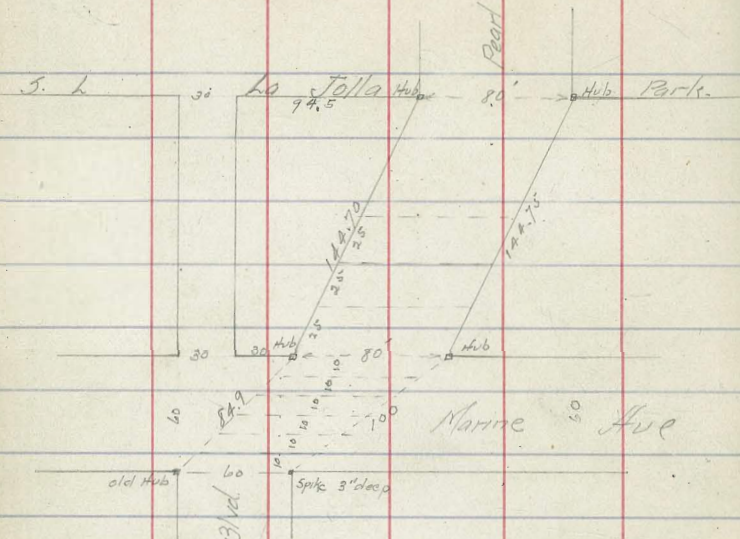 Pearl
S. L 30 La Jolla Hub 80' Hub Park.
94.5
144.70
25
144.75
25
25
30 30 Hub 80' Hub
10
10
84.9 10
60 10 100 Marine 60 Ave
10
10
old Hub 60 Spike 3" deep
Blvd.